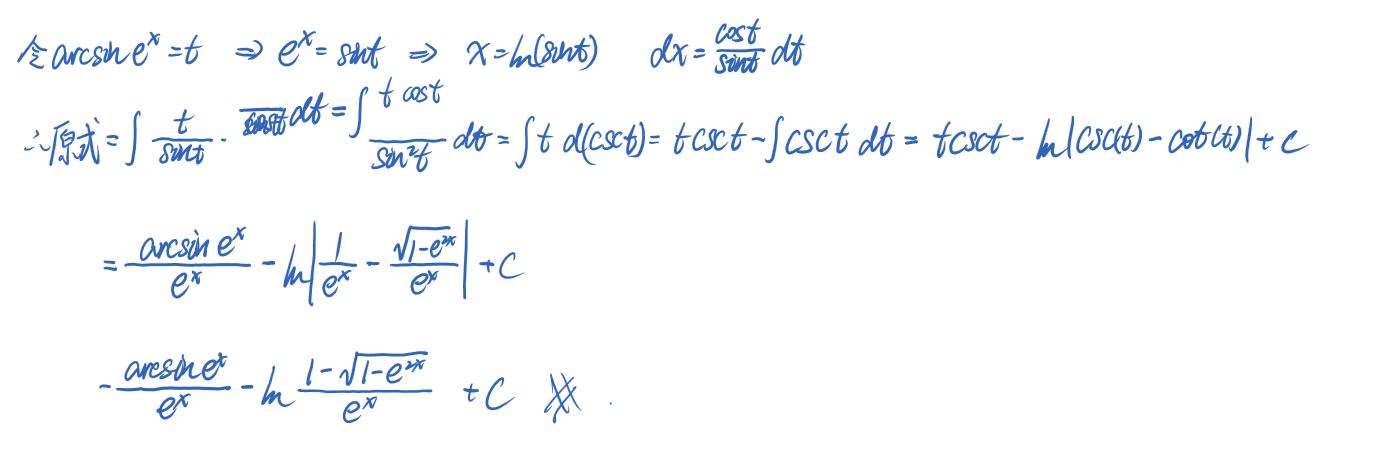 令 arcsin e^x = t ⇒ e^x = sint ⇒ x = ln(sint) dx = cost/sint dt
∴原式 = ∫ t/sint · dt = ∫ t cost / sin²t dt = ∫ t d(csct) = t csct - ∫ csct dt = tcsct - ln|csc(t) - cot(t)| + C
= arcsin e^x / e^x - ln| 1/e^x - √(1-e^2x) / e^x | + C
- arcsin e^x / e^x - ln (1 - √(1-e^2x)) / e^x + C